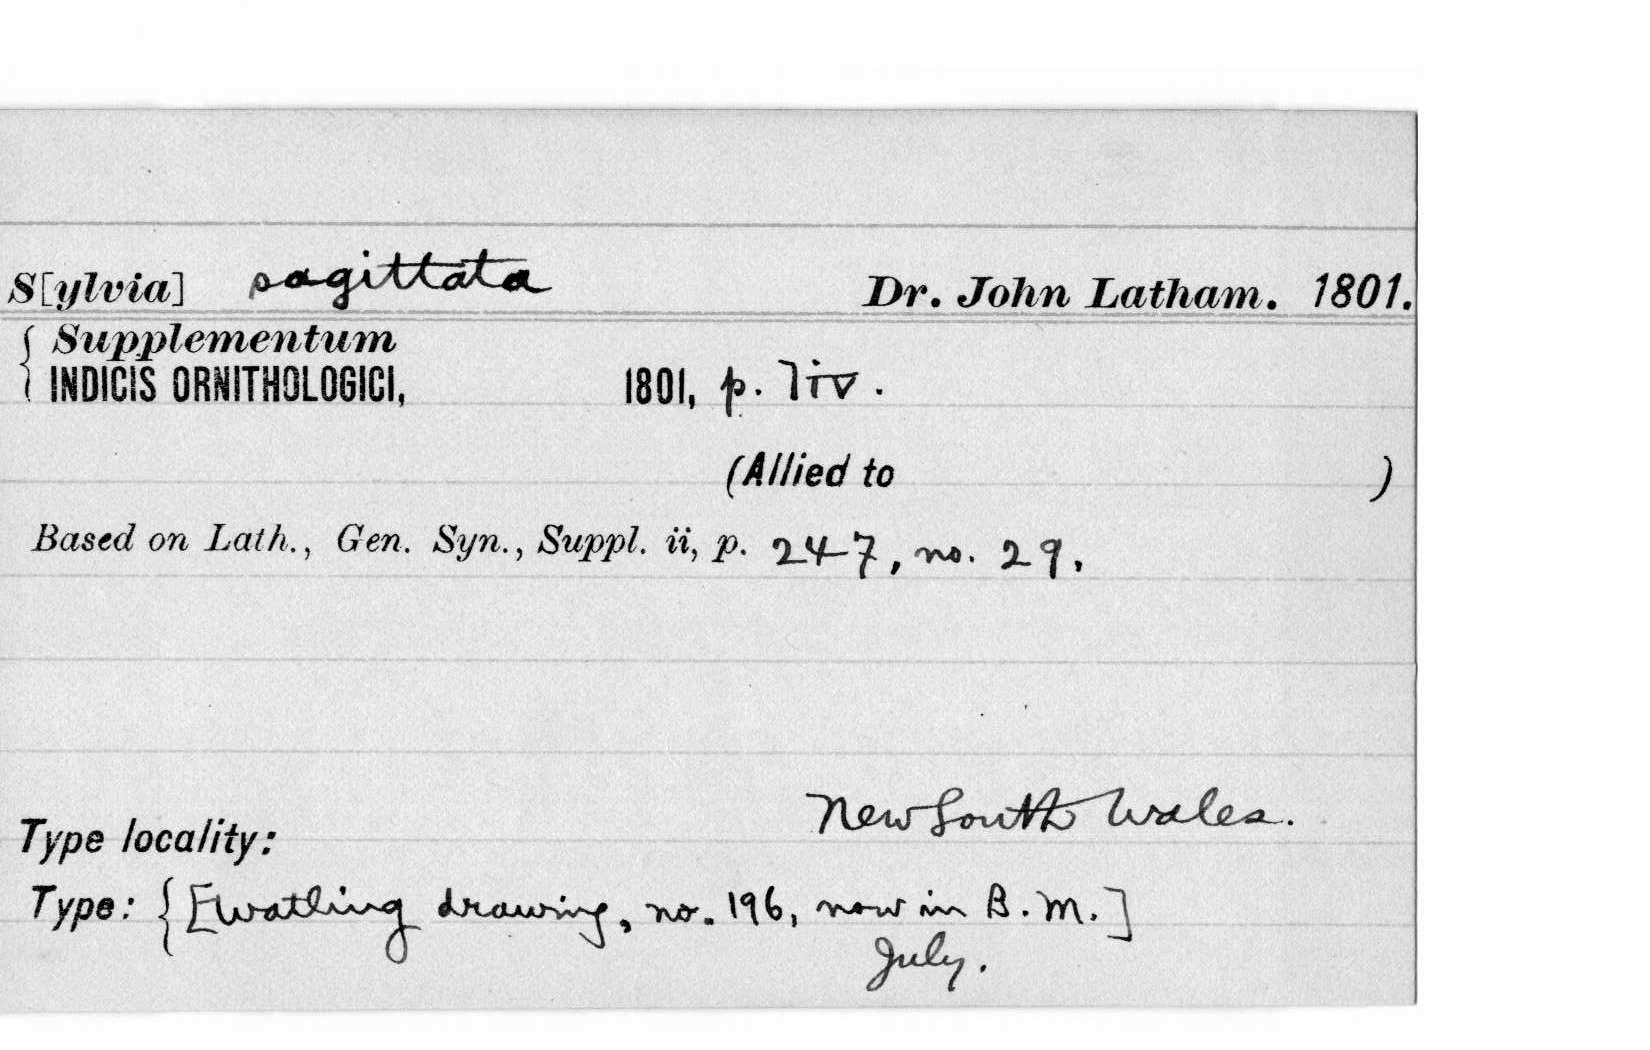 S[ylvia] sagittata Dr. John Latham. 1801.
{ Supplementum
INDICIS ORNITHOLOGICI, 1801, p. liv.
(Allied to )
Based on Lath., Gen. Syn., Suppl. ii, p. 247, no. 29.
New South Wales.
Type locality:
Type: { [Watling drawing, no. 196, now in B.M.]
July.